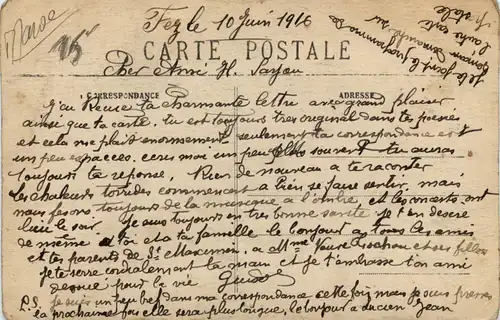 Maroc
Fez le 10 Juin 1916
Je te joint le programme de
Dimanche sur
l'autre carte
postale
15
CARTE POSTALE
Cher Ami H.
CORRESPONDANCE
ADRESSE
J'ai Reçue ta charmante lettre avec grand plaisir
ainsi que ta carte, tu est toujours tres original dans tes poésies
et cela me plait enormement seulement ta correspondance est
un peu espacee. ecris moi un peu plus souvent tu auras
toujours ta reponse. Rien de nouveau a te raconter
les chaleurs torrides commencent a bien se faire sentir, mais
nous fesons toujours de la musique a l'ombre, et les concerts ont
lieu le soir. Je suis toujours en tres bonne santé je t'en desire
de même a toi et a ta famille le bonjour a tous les amis
et tes parents de St Maximin, a Mme Veuve et ses filles
je te serre cordialement ta main et je t'embrasse ton ami
devoué pour la vie
P.S. je suis un peu bref dans ma correspondance cette fois mais je suis pressé
la prochaine fois elle sera plus longue, le bonjour a Lucien Jean